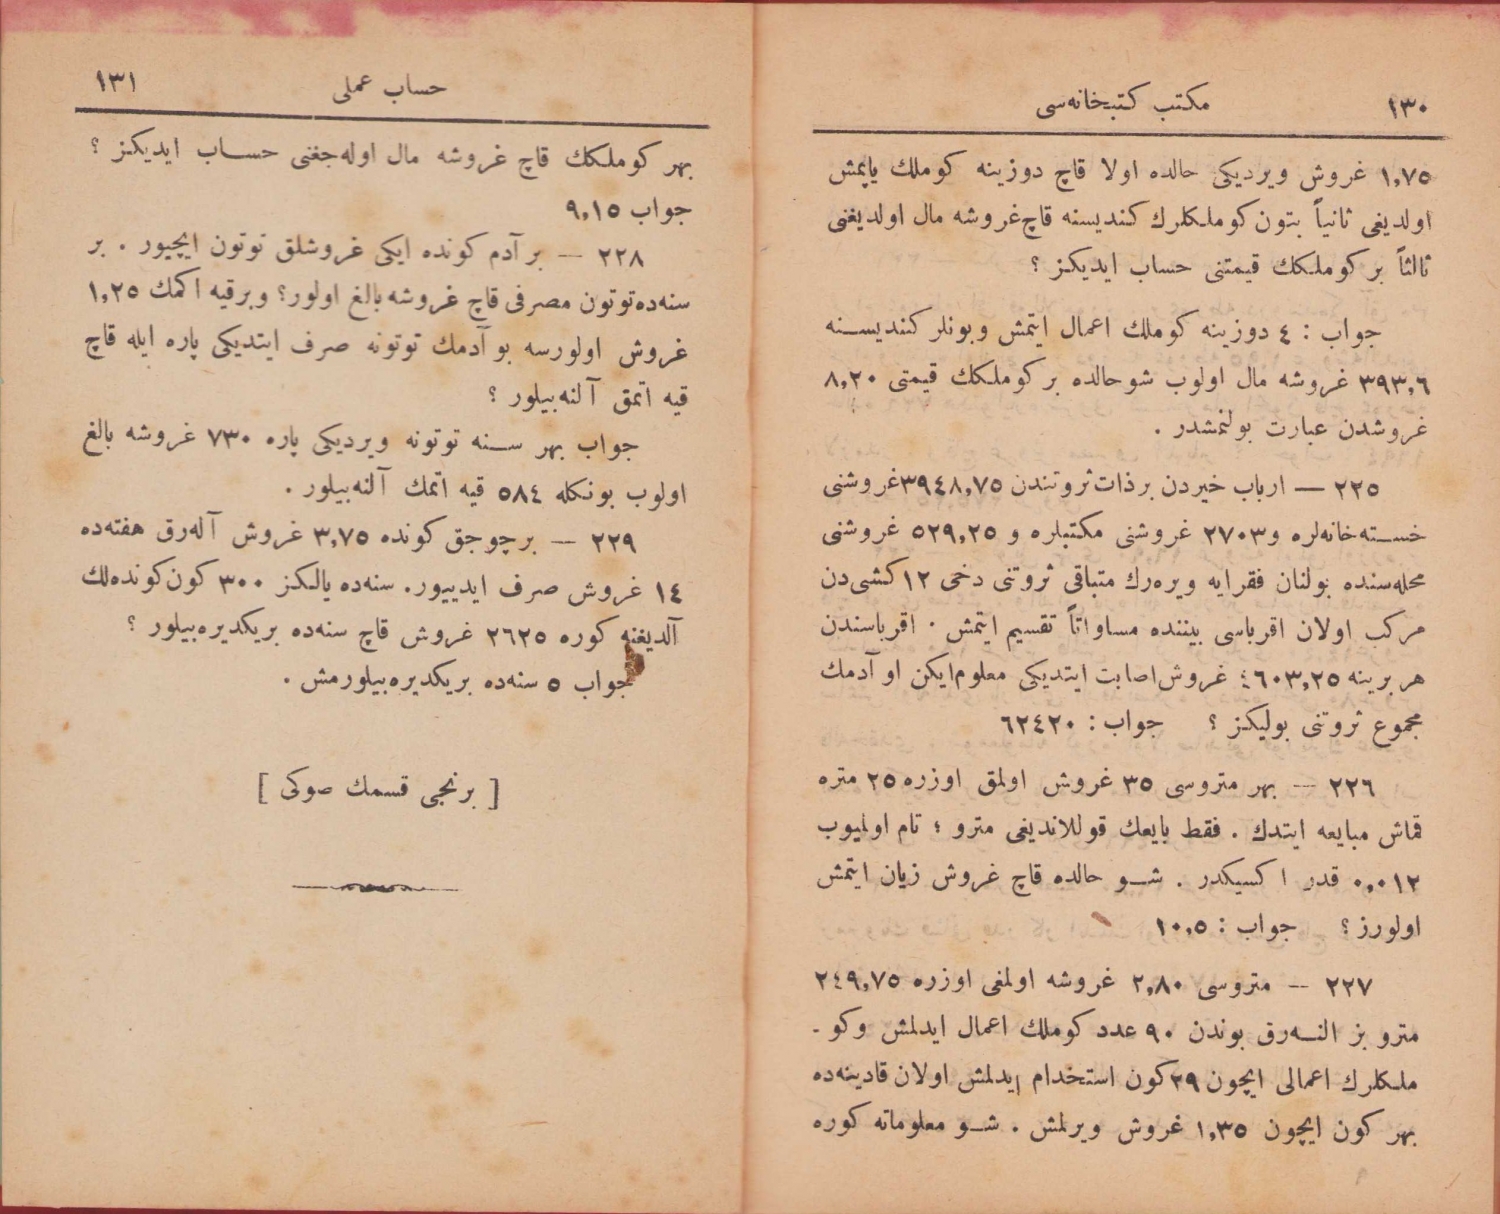 ١٣٠ مكتب كتبخانه‌سی
١,٧٥ غروش ويرديكی حالده اولا قاچ دوزينه كوملك ياپمش
اولديغی ثانياً بتون كوملكلرك كنديسنه قاچ غروشه مال اولديغنی
ثالثاً بر كوملكك قيمتنی حساب ايديكز ؟
جواب : ٤ دوزينه كوملك اعمال ايتمش وبونلر كنديسنه
٣٩٣,٦ غروشه مال اولوب شو حالده بر كوملكك قيمتی ٨,٢٠
غروشدن عبارت بولنمشدر .
٢٢٥ — ارباب خيردن بر ذات ثروتندن ٣٩٤٨,٧٥ غروشنی
خسته‌خانه‌لره و ٢٧٠٣ غروشنی مكتبلره و ٥٢٩,٢٥ غروشنی
محله‌سنده بولنان فقرايه ويره‌رك متباقی ثروتنی دخی ١٢ كشی‌دن
مركب اولان اقرباسی بيننده مساواتاً تقسيم ايتمش . اقرباسندن
هر برينه ٤٦٠٣,٢٥ غروش اصابت ايتديكی معلوم ايكن او آدمك
مجموع ثروتنی بوليكز ؟ جواب : ٦٢٤٢٠
٢٢٦ — بهر متروسی ٣٥ غروش اولمق اوزره ٢٥ متره
قماش مبايعه ايتدك . فقط بايعك قوللانديغی مترو ؛ تام اولميوب
٠,٠١٢ قدر اكسيكدر . شو حالده قاچ غروش زيان ايتمش
اولورز ؟ جواب : ١٠,٥
٢٢٧ — متروسی ٢,٨٠ غروشه اولمغی اوزره ٢٤٩,٧٥
مترو بز النه‌رق بوندن ٩٠ عدد كوملك اعمال ايدلمش وكو -
ملكلرك اعمالی ايچون ٢٩ كون استخدام ايدلمش اولان قادينه‌ده
بهر كون ايچون ١,٣٥ غروش ويرلمش . شو معلوماته كوره
حساب عملی ١٣١
بهر كوملكك قاچ غروشه مال اوله‌جغنی حساب ايديكز ؟
جواب ٩,١٥
٢٢٨ — بر آدم كونده ايكی غروشلق توتون ايچيور . بر
سنه‌ده توتون مصرفی قاچ غروشه بالغ اولور؟ وبرقيه اكمك ١,٢٥
غروش اولورسه بو آدمك توتونه صرف ايتديكی پاره ايله قاچ
قيه اتمق آلنه‌بيلور ؟
جواب بهر سنه توتونه ويرديكی پاره ٧٣٠ غروشه بالغ
اولوب بونكله ٥٨٤ قيه اتمك آلنه‌بيلور .
٢٢٩ — بر چوجق كونده ٣,٧٥ غروش آله‌رق هفته‌ده
١٤ غروش صرف ايدييور. سنه‌ده يالكز ٣٠٠ كون كونده‌لك
آلديغنه كوره ٢٦٢٥ غروش قاچ سنه‌ده بريكديره‌بيلور ؟
جواب ٥ سنه‌ده بريكديره‌بيلورمش .
[ برنجی قسمك صوكی ]